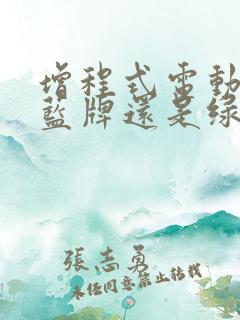 增程式電動
藍牌還是綠
張志勇
未經同意禁止轉載